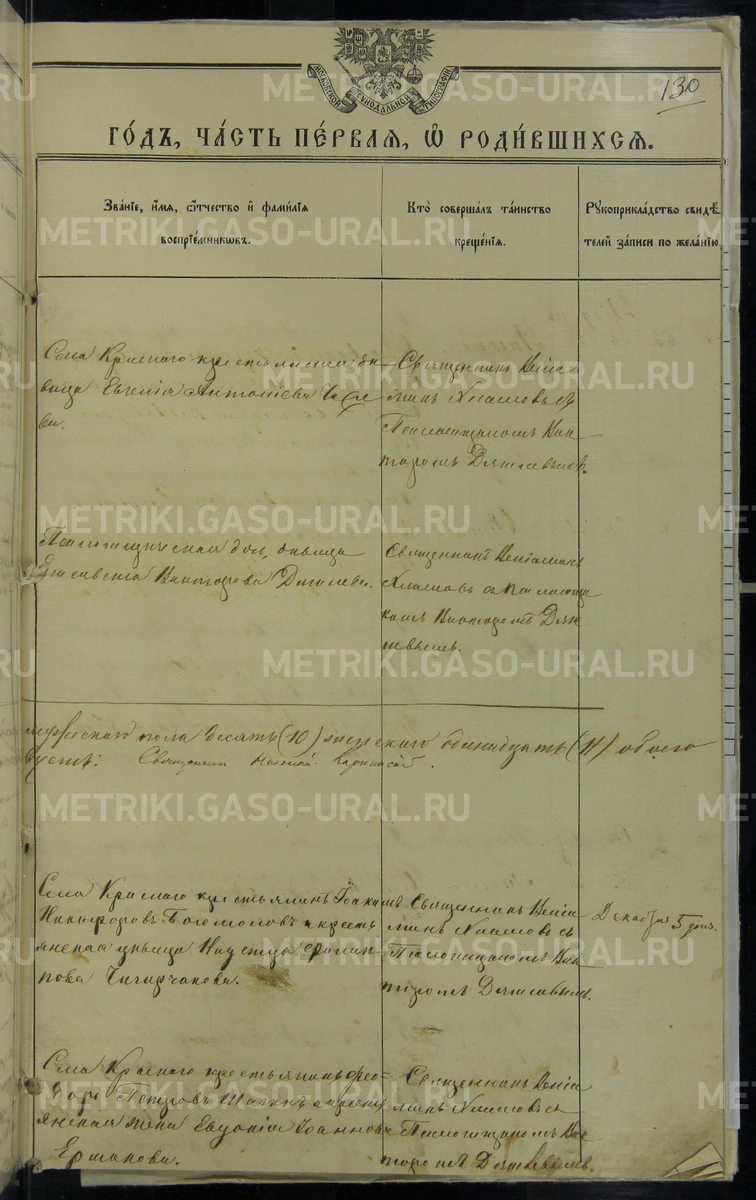 130
МОСКОВСКОЙ СѴНОДАЛЬНОЙ ТИПОГРАФІИ
ГО́ДЪ, ЧА́СТЬ ПЕ́РВАЯ, Ѽ РОДИ́ВШИХСЯ.
Зва́нїе, и́мя, ѻ҆́тчество и҆ фами́лїя
воспрїе́мникωвъ.
Кто̀ соверша́лъ та́инство
креще́нїя.
Рꙋкоприкла́дство свидѣ́-
телей за́писи по жела́нїю.
Села Краснаго крестьянская дѣ-
вица Евгенія Антоніева
ва.
Священникъ Веніа-
минъ Хламовъ съ
Псаломщикомъ Вик-
торомъ Дягилевымъ.
Псаломщическая дочь, дѣвица
Викторова Дягилева.
Священникъ Веніаминъ
Хламовъ съ псаломщи-
комъ Викторомъ Дяги-
левымъ.
мужескаго пола десять (10) женскаго одинадцать (11) обоего
Священникъ
Села Краснаго крестьянинъ Іоакимъ
Никифоровъ Богомоловъ и кресть-
янская дѣвица Филип-
пова
Священникъ Веніа-
минъ Хламовъ съ
Псаломщикомъ Вик-
торомъ Дягилевымъ.
Декабря 5 дня.
Села Краснаго крестьянинъ Фео-
доръ Петровъ и кресть-
янская жена Евдокія Іоаннова
Ермакова.
Священникъ Веніа-
минъ Хламовъ съ
Псаломщикомъ Вик-
торомъ Дягилевымъ.
METRIKI.GASO-URAL.RU